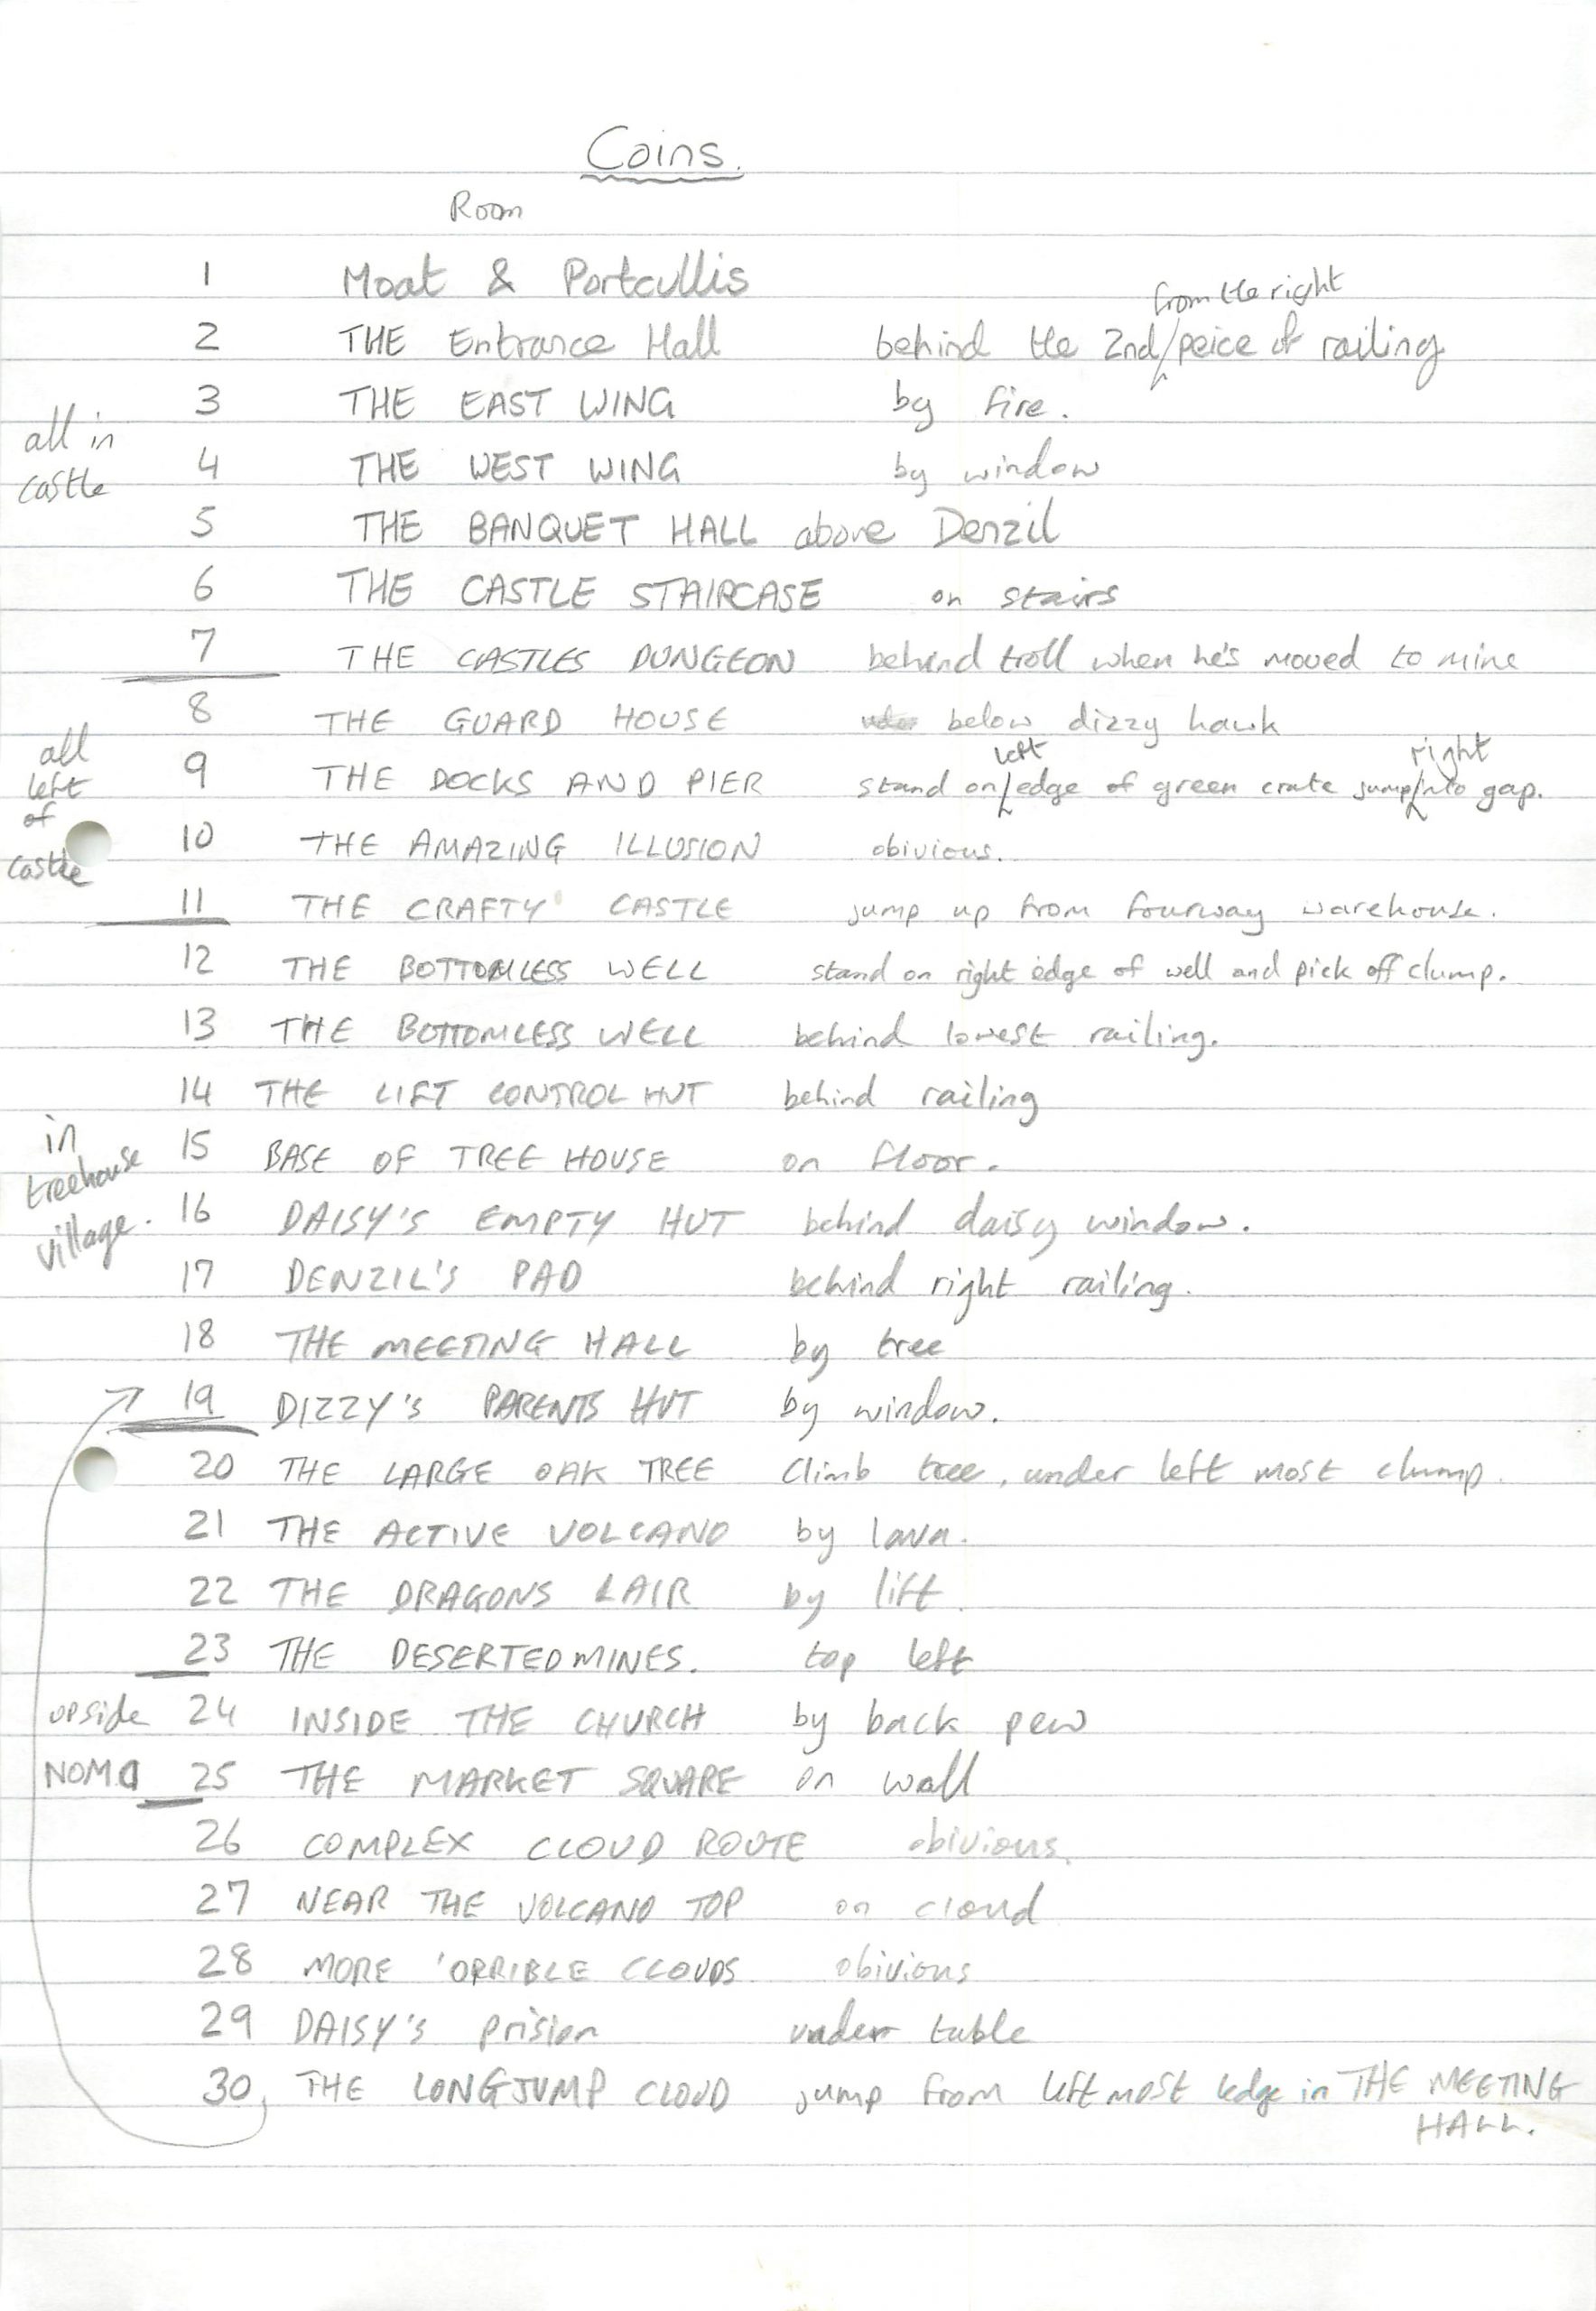 Coins.
Room
1 Moat & Portcullis
2 THE Entrance Hall behind the 2nd from the right peice of railing
3 THE EAST WING by fire.
all in castle
4 THE WEST WING by window
5 THE BANQUET HALL above Denzil
6 THE CASTLE STAIRCASE on stairs
7 THE CASTLES DUNGEON behind troll when he's moved to mine
8 THE GUARD HOUSE below dizzy hawk
all left of castle
9 THE DOCKS AND PIER stand on left edge of green crate jump right into gap.
10 THE AMAZING ILLUSION obivious.
11 THE CRAFTY CASTLE jump up from fourway warehouse.
12 THE BOTTOMLESS WELL stand on right edge of well and pick off clump.
13 THE BOTTOMLESS WELL behind lowest railing.
14 THE LIFT CONTROL HUT behind railing
in treehouse village.
15 BASE OF TREE HOUSE on floor.
16 DAISY'S EMPTY HUT behind daisy window.
17 DENZIL'S PAD behind right railing.
18 THE MEETING HALL by tree
19 DIZZY'S PARENTS HUT by window.
20 THE LARGE OAK TREE climb tree, under left most clump.
21 THE ACTIVE VOLCANO by lava.
22 THE DRAGONS LAIR by lift.
23 THE DESERTED MINES. top left
upside 24 INSIDE THE CHURCH by back pew
25 THE MARKET SQUARE on wall
26 COMPLEX CLOUD ROUTE obivious.
27 NEAR THE VOLCANO TOP on cloud
28 MORE 'ORRIBLE CLOUDS obivious
29 DAISY'S prision under table
30 THE LONGJUMP CLOUD jump from left most ledge in THE MEETING
HALL.